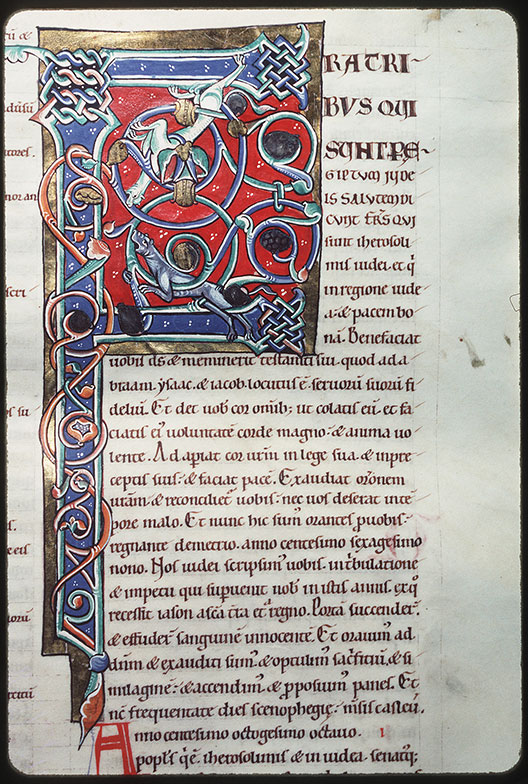 FRATRI-
BUS QUI
SUNT PE-
GIPTUM IUDE
IS SALUTEM DI
CUNT FRS QUI
sunt iherosoli
mis iudei. et q
in regione iude
a: & pacem bo
nā. Benefaciat
uobis ds & meminerit testamti sui. quod ad a
braam. ysaac. & iacob. locutus ē. seruorū suorū fi
deliū. Et det uob cor omīb; ut colatis eū. et fa
ciatis ei uoluntatē corde magno. & anima uo
lente. Adapiat cor urm in lege sua. & in pre
ceptis suis. & faciat pacē. Exaudiat oronem
uram. & reconcilietr uobis. nec uos deserat in te
pore malo. Et nunc hic sum orantes p uobis.
regnante demetrio. anno centesimo sexagesimo
nono. Nos iudei scripsim uobis. in tribulatione
& impetu qui supuenit uob in istis annis. ex q
recessit iason a sca tra et a regno. Portā succender.
& effuder sanguinē innocentē. Et orauim ad
dnm & exauditi sum. & optulim sacrificiū. & si
milaginē. & accendim & pposuim panes. Et
nc frequentate dies scenophegie. msis casleu.
Anno centesimo octogesimo octauo. 1
popls q ē. iherosolimis & in iudea. senatq;